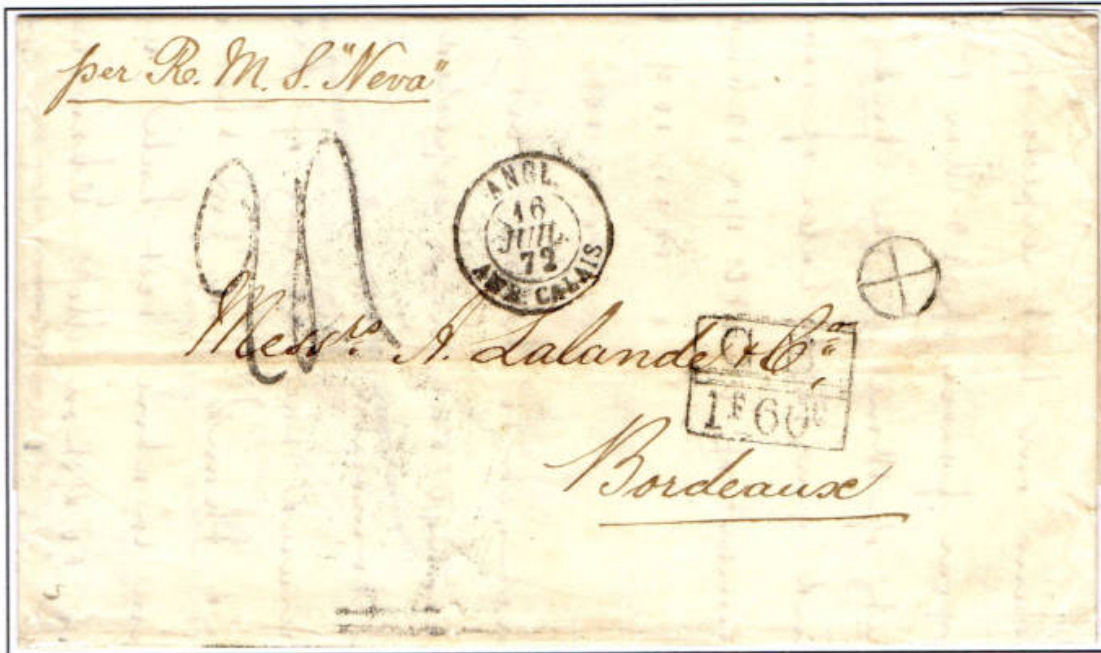 per R. M. S. "Neva"
ANGL.
16
JUIL.
72
AMB. CALAIS
Messrs A. Lalande & Co,
G.B.
1F60c
Bordeaux